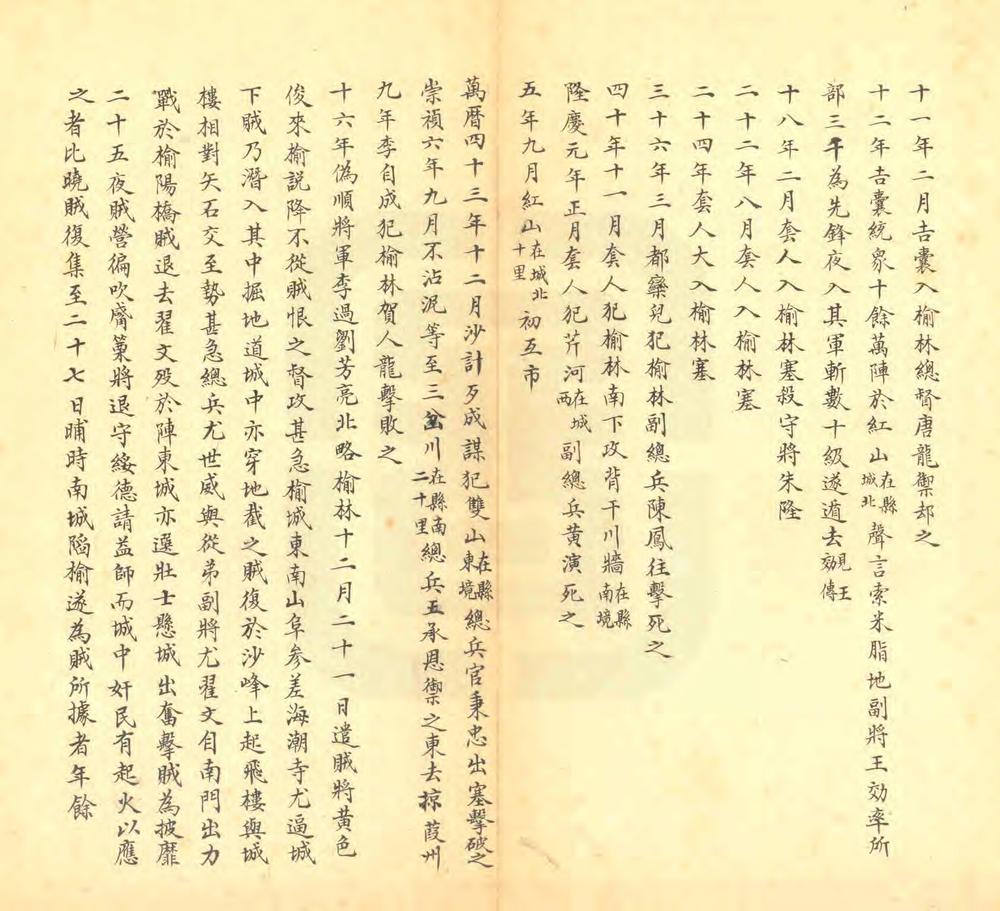 十一年二月吉囊入榆林總督唐龍禦却之
十二年吉囊統眾十餘萬陣於紅山在縣城北聲言索米脂地副將王効率所
部三千為先鋒夜入其軍斬數十級遂遁去見王効傳
十八年二月套人入榆林塞殺守將朱隆
二十二年八月套人入榆林塞
二十四年套人大入榆林塞
三十六年三月都欒兒犯榆林副總兵陳鳳往擊死之
四十年十一月套人犯榆林南下攻背干川牆在縣南境
隆慶元年正月套人犯芹河在城西副總兵黃演死之
五年九月紅山在城北十里初五市
萬曆四十三年十二月沙計歹成謀犯雙山在縣東境總兵官秉忠出塞擊破之
崇禎六年九月不沾泥等至三岔川在縣南二十里總兵王承恩禦之東去掠葭州
九年李自成犯榆林賀人龍擊敗之
十六年偽順將軍李過劉芳亮北略榆林十二月二十一日遣賊將黃色
俊來榆説降不從賊恨之督攻甚急榆城東南山阜参差海潮寺尤逼城
下賊乃潛入其中掘地道城中亦穿地截之賊復於沙峰上起飛樓與城
樓相對矢石交至勢甚急總兵尤世威與從弟副將尤翟文自南門出力
戰於榆陽橋賊退去翟文歿於陣東城亦選壯士懸城出奮擊賊為披靡
二十五夜賊營徧吹觱篥將退守綏德請益師而城中奸民有起火以應
之者比曉賊復集至二十七日晡時南城陷榆遂為賊所據者年餘